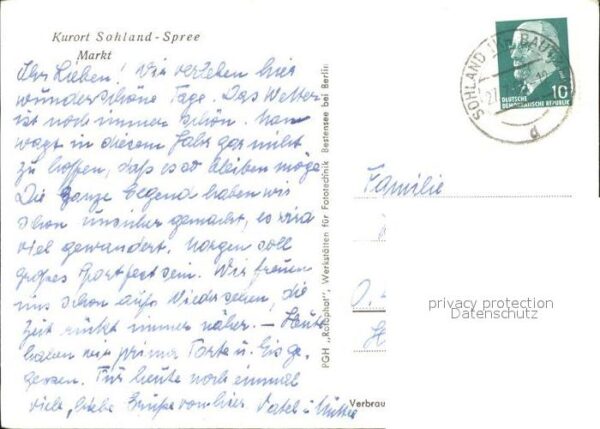 Kurort Sohland-Spree
Markt
Ihr Lieben! Wir verleben hier
wunderschöne Tage. Das Wetter
ist noch immer schön. Man
wagt in diesem Jahr gar nicht
zu hoffen, daß es so bleiben möge
Die ganze Gegend haben wir
schon unsicher gemacht, es wird
viel gewandert. Morgen soll
großes Sportfest sein. Wir freuen
uns schon aufs Wiedersehen, die
Zeit rückt immer näher. – Heute
haben wir prima Torte u. Eis ge-
gessen. Für heute noch einmal
viele, liebe Grüße von hier. Vater u. Mutter
PGH „Rotophot“, Werkstätten für Fototechnik Bestensee bei Berlin
SOHLAND
27
d
10
DEUTSCHE
DEMOKRATISCHE REPUBLIK
Familie
privacy protection
Datenschutz
Verbrau